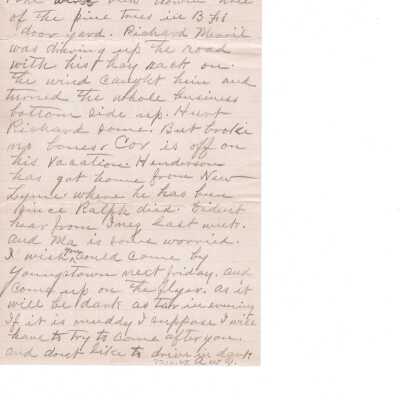 The wind blew down one
of the pine trees in B Fs
door yard. Richard Merril
was driving up the road
with his hay rack on.
the wind caught him and
turned the whole business
bottom side up. Hurt
Richard some. But broke
no bones. Cox is off on
his Vacation. Henderson
has got home from New
Lyme where he has been
since Ralph died. Dident
hear from Inez last week.
And Ma is some worried.
I wish you could come by
Youngstown next friday. and
come up on the flyer. as it
will be dark as tar in evening
If it is muddy I suppose I will
have to try to come after you.
and dont like to drive in dark
A.W.D.